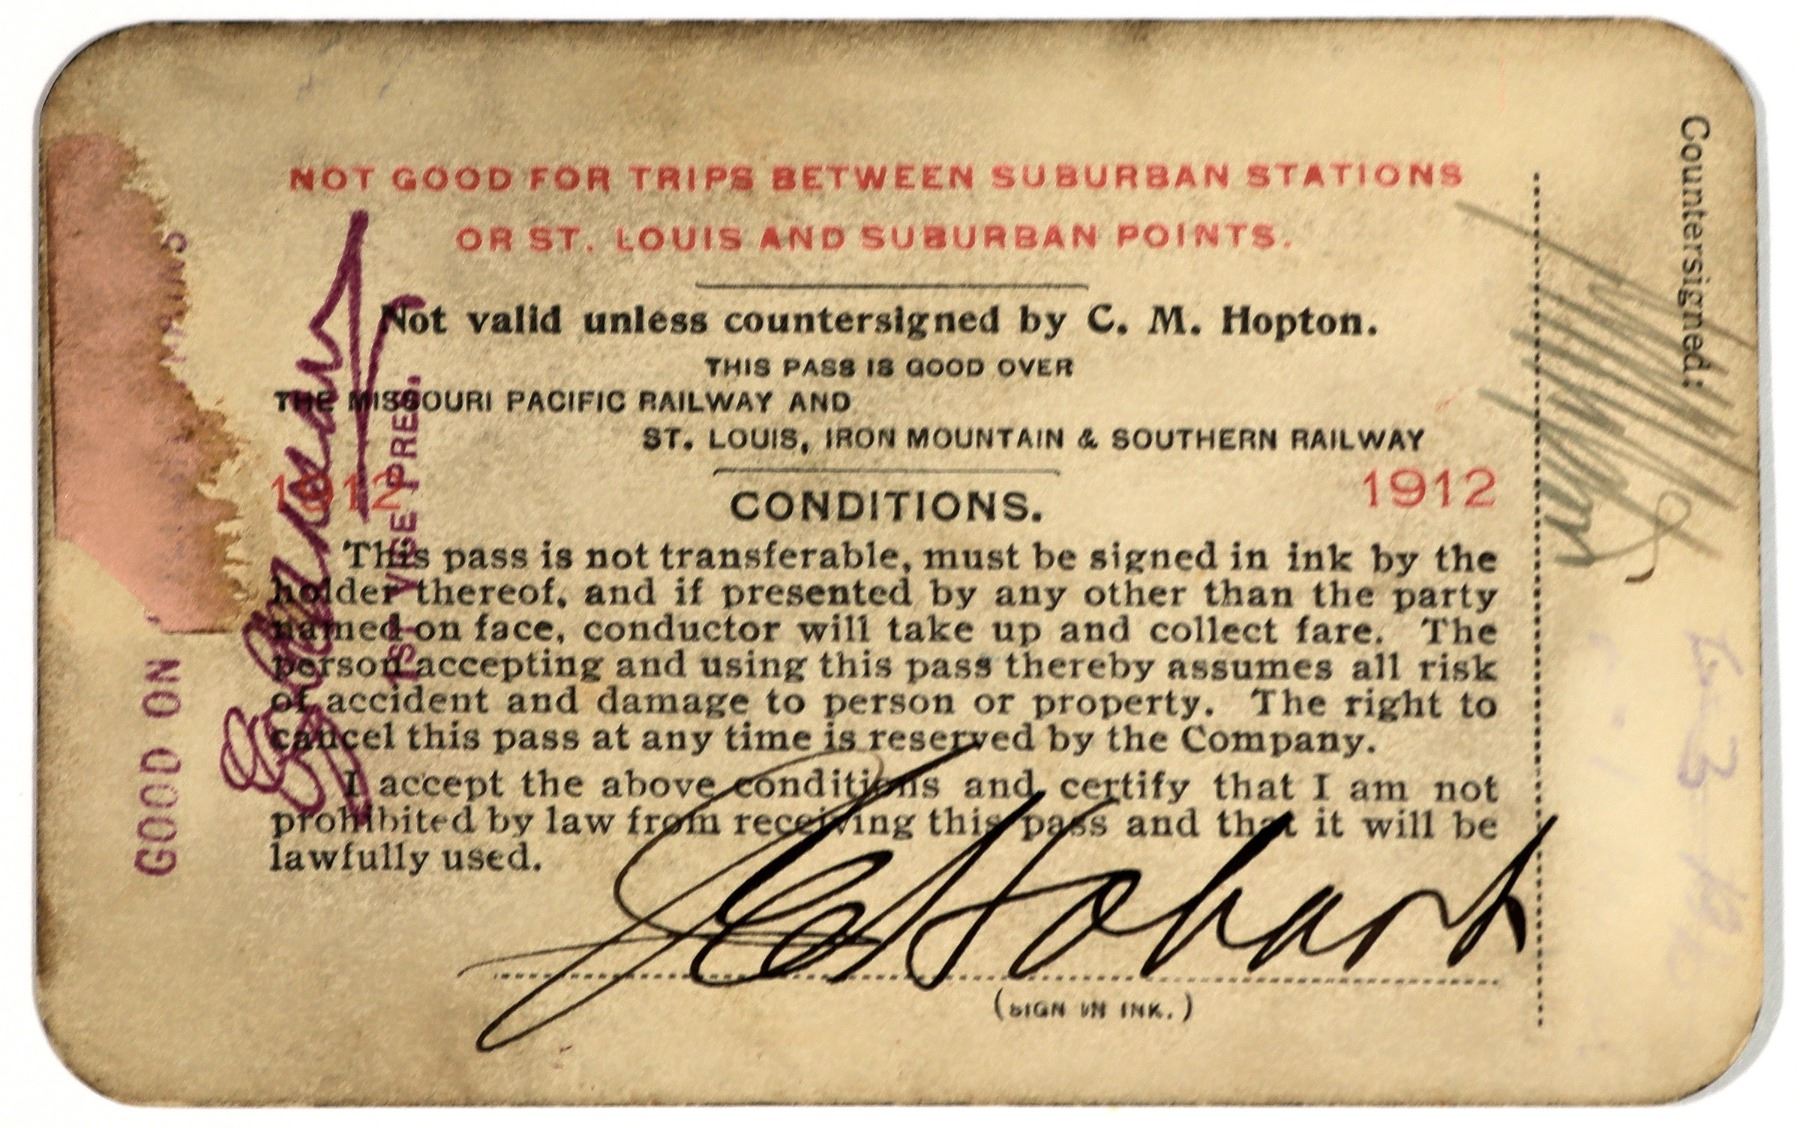 NOT GOOD FOR TRIPS BETWEEN SUBURBAN STATIONS
OR ST. LOUIS AND SUBURBAN POINTS.
Not valid unless countersigned by C. M. Hopton.
THIS PASS IS GOOD OVER
THE MISSOURI PACIFIC RAILWAY AND
ST. LOUIS, IRON MOUNTAIN & SOUTHERN RAILWAY
1912 1912
CONDITIONS.
This pass is not transferable, must be signed in ink by the
holder thereof, and if presented by any other than the party
named on face, conductor will take up and collect fare. The
person accepting and using this pass thereby assumes all risk
of accident and damage to person or property. The right to
cancel this pass at any time is reserved by the Company.
I accept the above conditions and certify that I am not
prohibited by law from receiving this pass and that it will be
lawfully used.
Hobart
(SIGN IN INK.)
GOOD ON
1ST VICE PRES.
Countersigned: